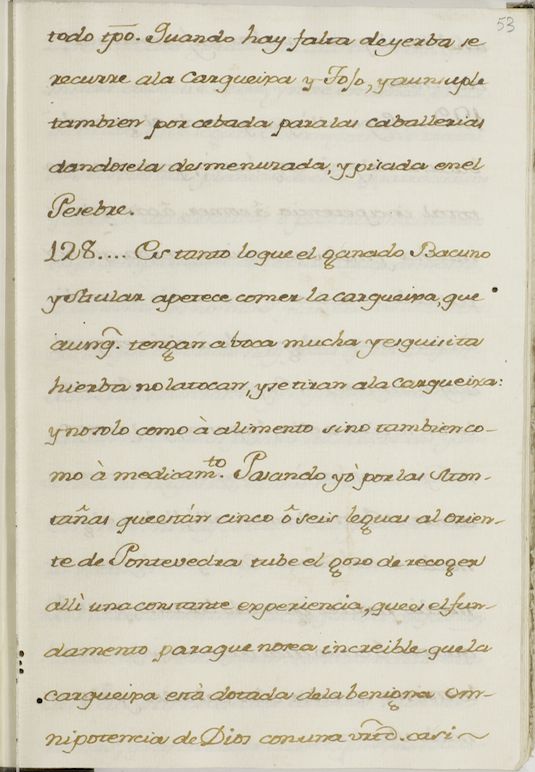 53
todo tp̃o. Quando hay falta de yerba se
recurre ala Cargueixa y Tojo, y aun suple
tambien por cebada para las caballerias
dandosela desmenuzada, y pisada en el
Pesebre.
128.... Es tanto lo que el ganado Bacuno
y Mular apetece comer la cargueixa, que
aunq̃. tengan a boca mucha y esquisita
hierba no la tocan, y se tiran a la Cargueixa:
y no solo como à alimento sino tambien co-
mo à medicam.to. Pasando yò por las Mon-
tañas que están cinco ô seis leguas al Orien-
te de Pontevedra tube el gozo de recoger
alli una constante experiencia, que es el fun-
damento para que no sea increible que la
Cargueixa està dotada de la benigna Om-
nipotencia de Dios con una virt̃d. casi ~